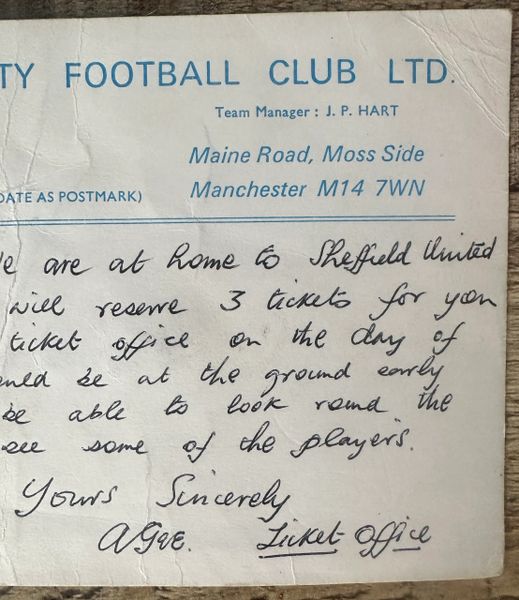 TY FOOTBALL CLUB LTD.
Team Manager : J. P. HART
Maine Road, Moss Side
DATE AS POSTMARK)
Manchester M14 7WN
e are at home to Sheffield United
will reserve 3 tickets for you
ticket office on the day of
uld be at the ground early
be able to look round the
see some of the players.
Yours Sincerely
Ticket Office